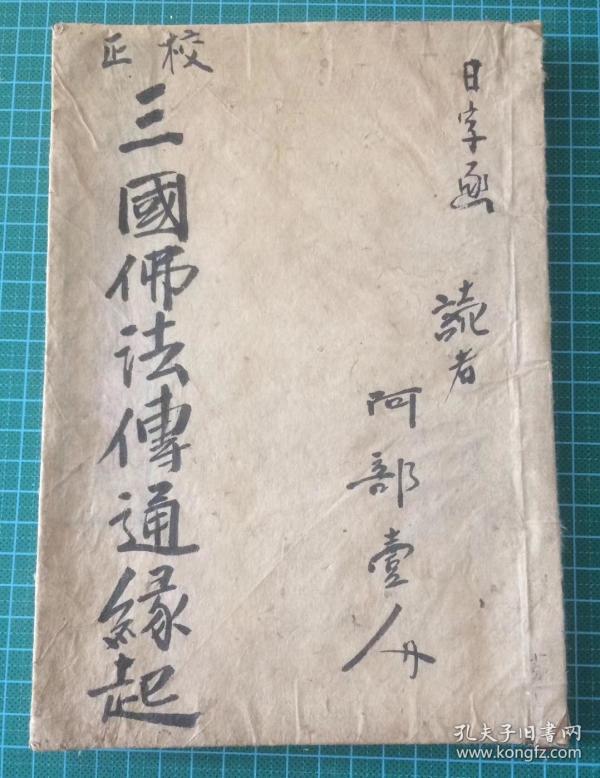 日字函
読者
阿部壹人
校正
三國佛法傳通縁起
孔夫子旧书网
www.kongfz.com